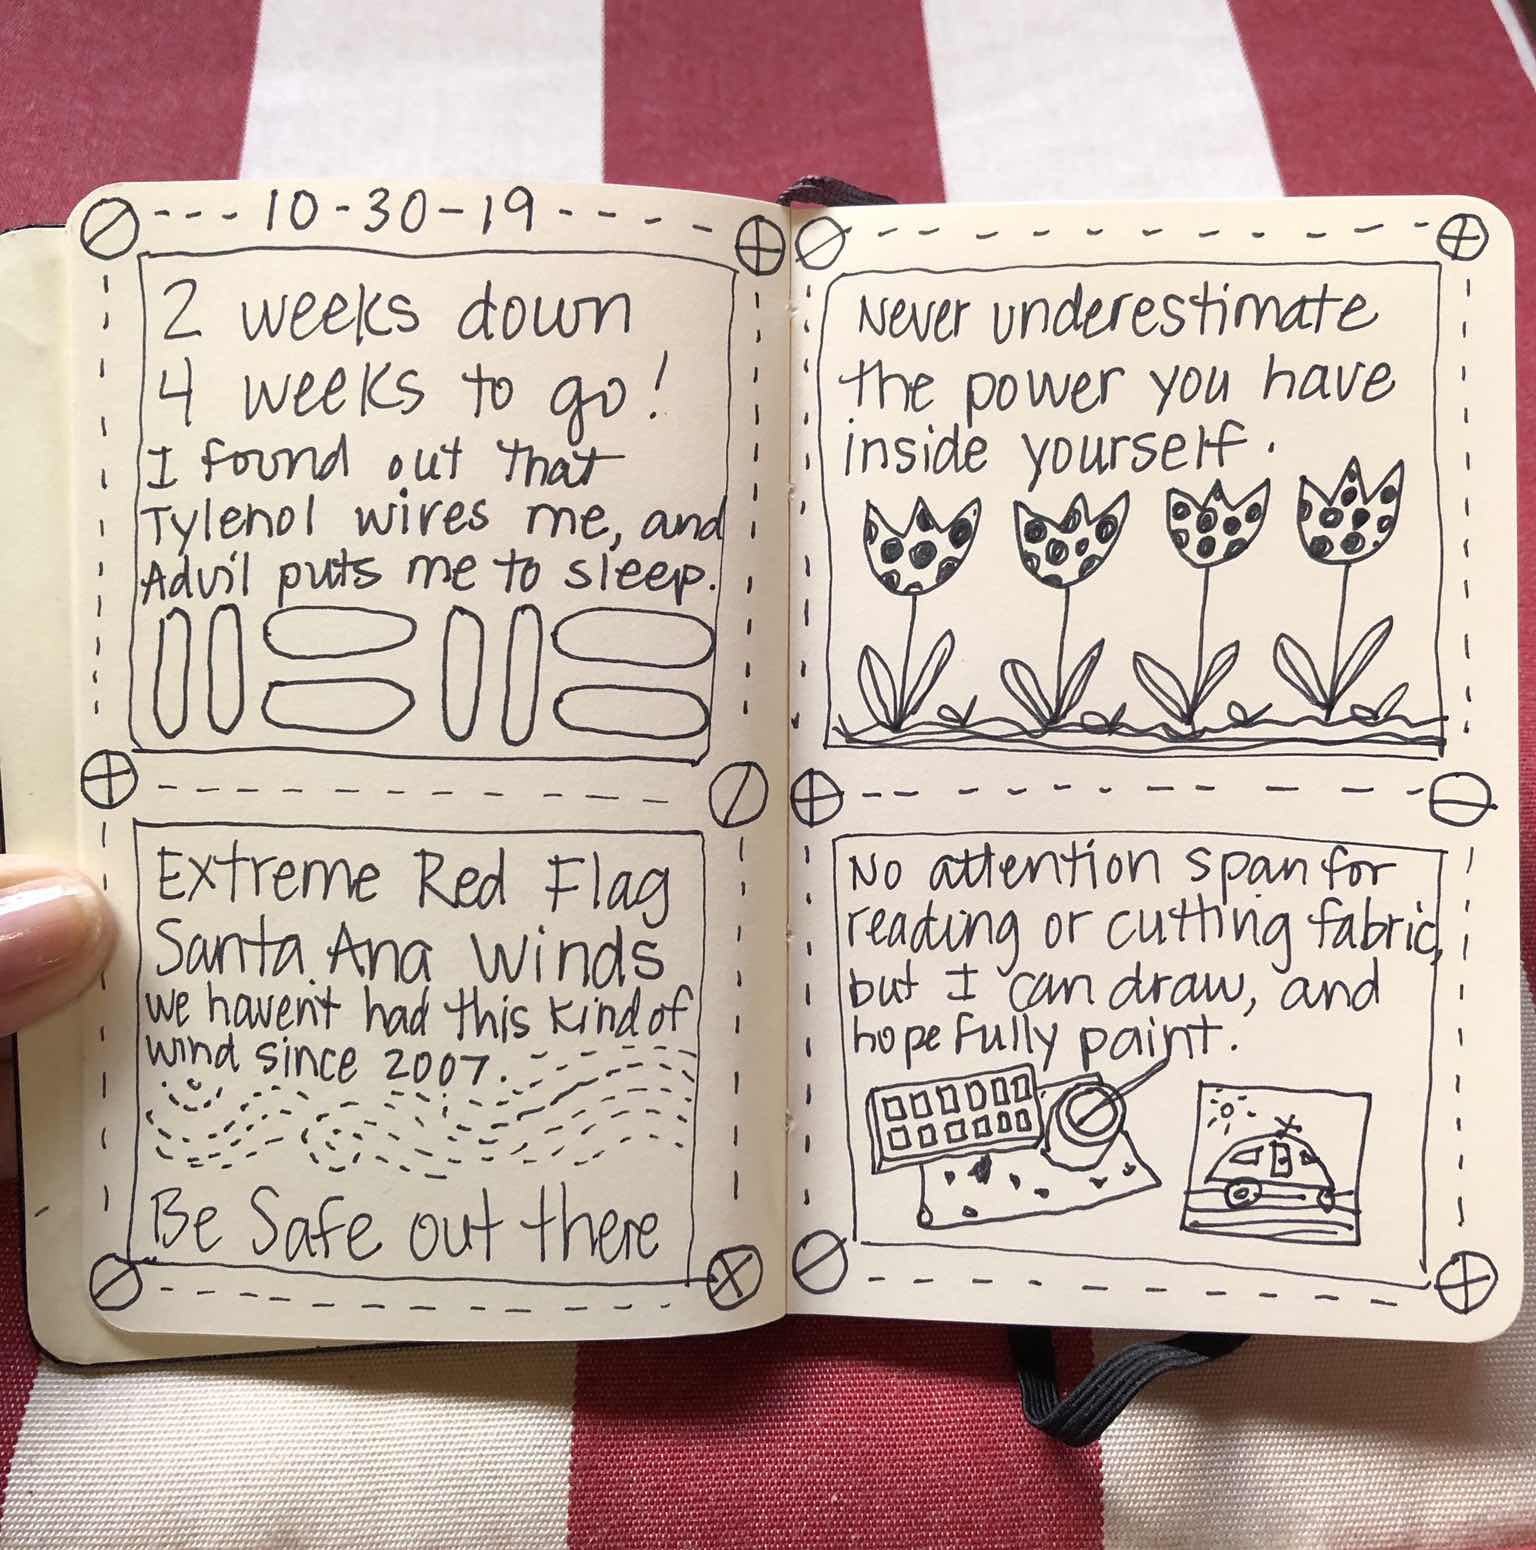 10-30-19
2 weeks down
4 weeks to go!
I found out that
Tylenol wires me, and
Advil puts me to sleep.
Extreme Red Flag
Santa Ana Winds
we haven't had this kind of
wind since 2007.
Be Safe out there
Never underestimate
the power you have
inside yourself.
No attention span for
reading or cutting fabric,
but I can draw, and
hopefully paint.